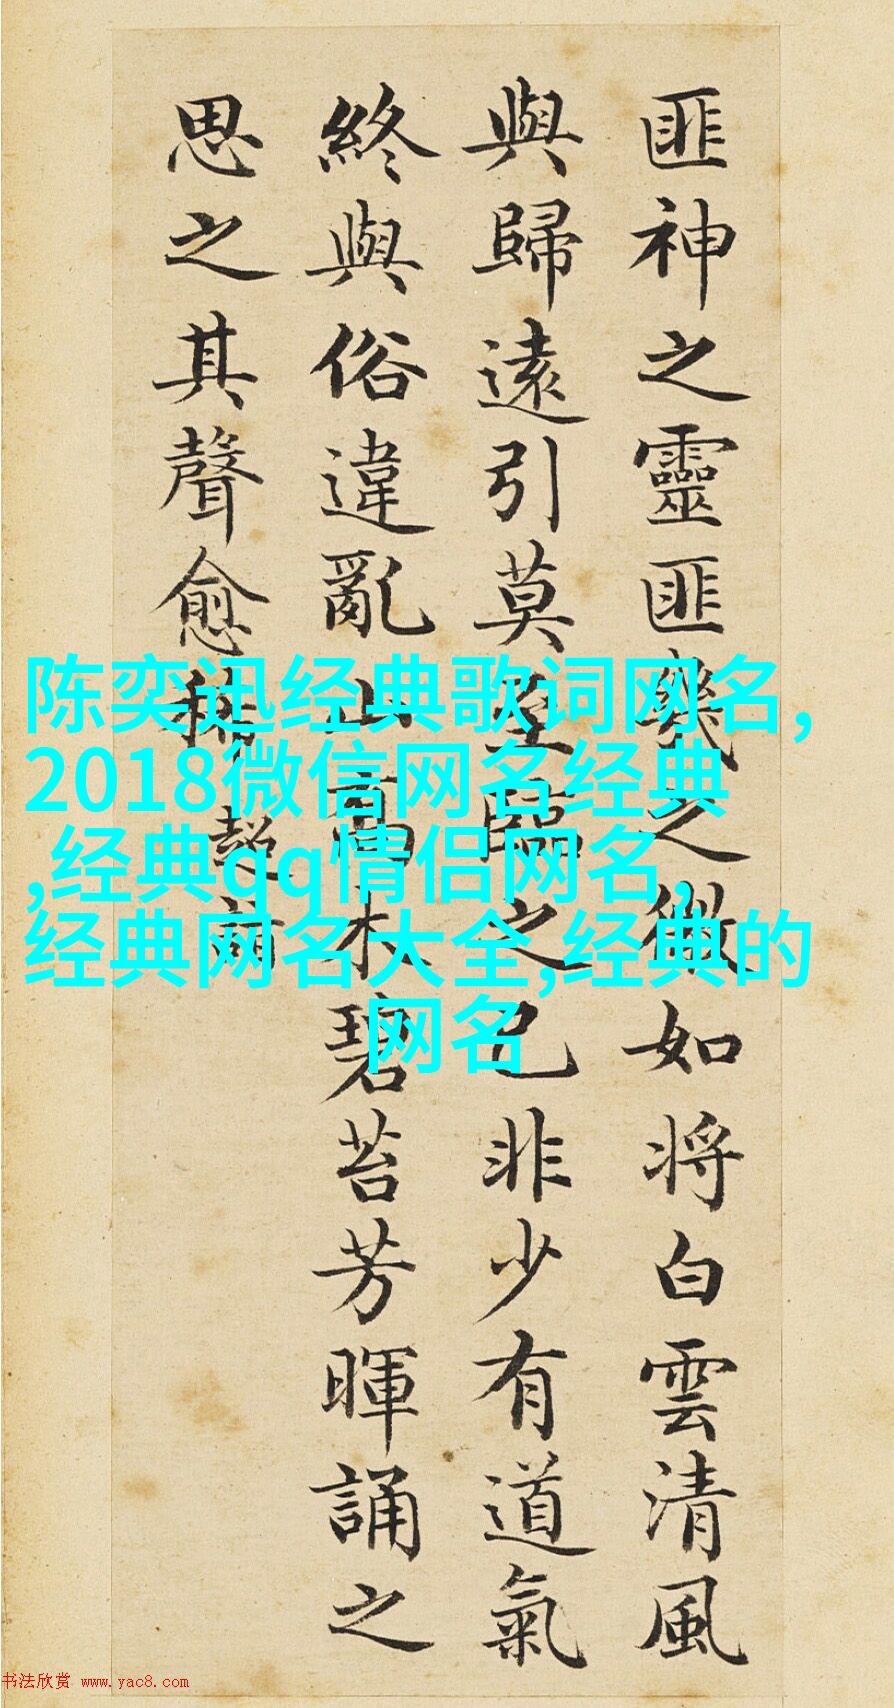 匪神之靈匪幾之微如將白雲清風
與歸遠引莫至臨之已非少有道氣
終與俗違亂山高木碧苔芳暉誦之
思之其聲愈稀
超
陈奕迅经典歌词网名,
2018微信网名经典
,经典qq情侣网名,
经典网名大全,经典的
网名
书法欣赏 www.yac8.com